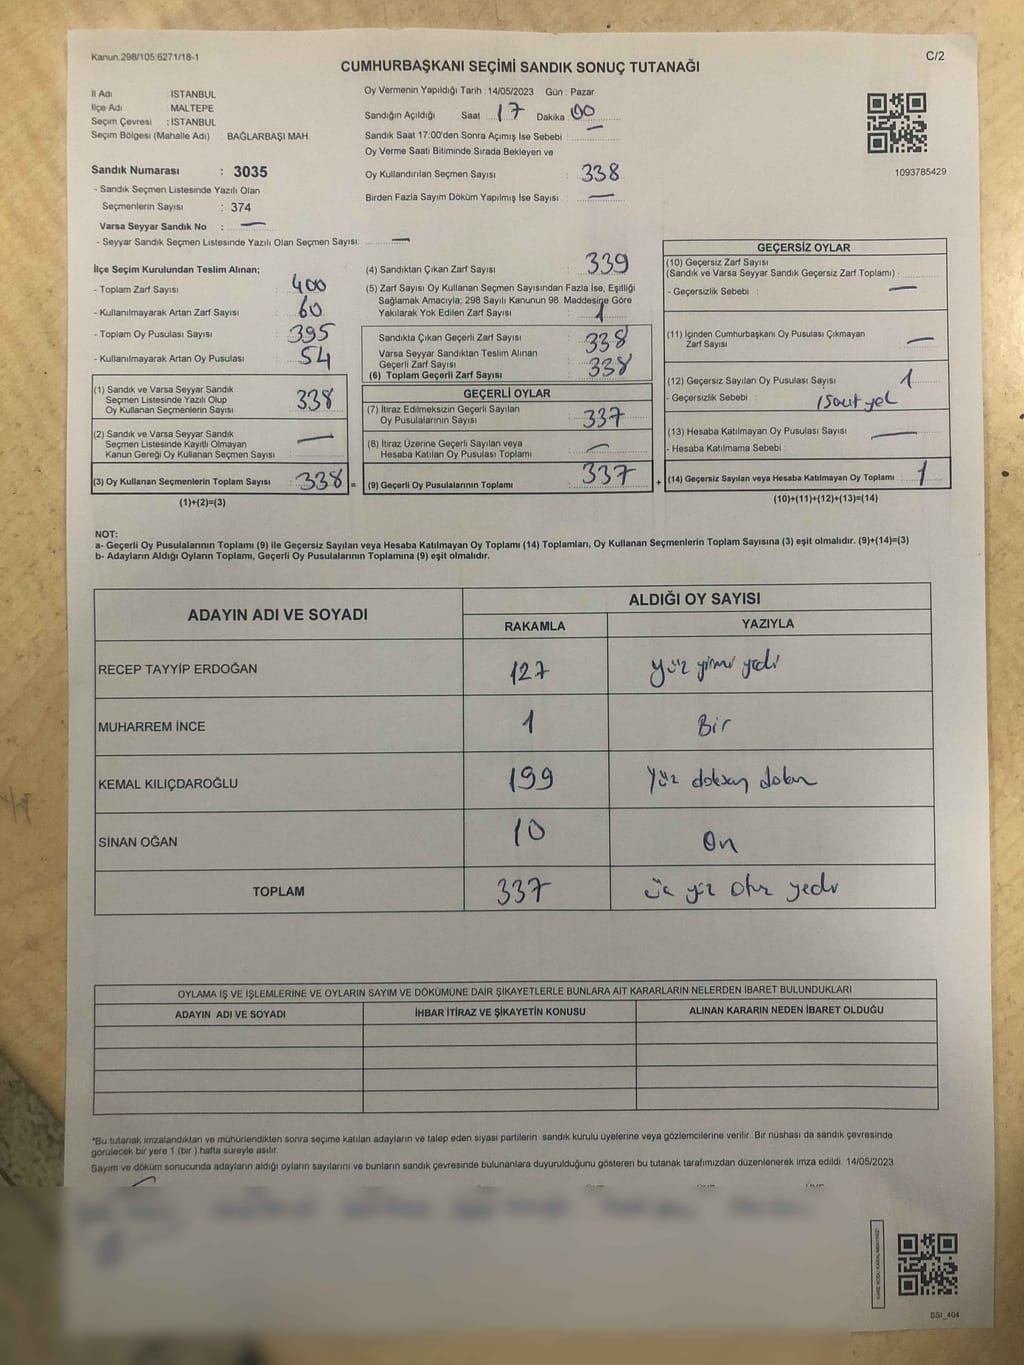 Kanun.298/105,6271/18-1
C/2
CUMHURBAŞKANI SEÇİMİ SANDIK SONUÇ TUTANAĞI
İl Adı İSTANBUL
İlçe Adı MALTEPE
Seçim Çevresi : İSTANBUL
Seçim Bölgesi (Mahalle Adı) BAĞLARBAŞI MAH.
Sandık Numarası : 3035
- Sandık Seçmen Listesinde Yazılı Olan
Seçmenlerin Sayısı : 374
Varsa Seyyar Sandık No : —
- Seyyar Sandık Seçmen Listesinde Yazılı Olan Seçmen Sayısı: —
Oy Vermenin Yapıldığı Tarih : 14/05/2023 Gün : Pazar
Sandığın Açıldığı Saat 17 Dakika 00
Sandık Saat 17:00'den Sonra Açımış İse Sebebi : —
Oy Verme Saati Bitiminde Sırada Bekleyen ve
Oy Kullandırılan Seçmen Sayısı : 338
Birden Fazla Sayım Döküm Yapılmış İse Sayısı : —
1093785429
İlçe Seçim Kurulundan Teslim Alınan;
- Toplam Zarf Sayısı : 400
- Kullanılmayarak Artan Zarf Sayısı : 60
- Toplam Oy Pusulası Sayısı : 395
- Kullanılmayarak Artan Oy Pusulası : 54
(1) Sandık ve Varsa Seyyar Sandık
Seçmen Listesinde Yazılı Olup
Oy Kullanan Seçmenlerin Sayısı : 338
(2) Sandık ve Varsa Seyyar Sandık
Seçmen Listesinde Kayıtlı Olmayan
Kanun Gereği Oy Kullanan Seçmen Sayısı : —
(3) Oy Kullanan Seçmenlerin Toplam Sayısı : 338 =
(1)+(2)=(3)
(4) Sandıktan Çıkan Zarf Sayısı : 339
(5) Zarf Sayısı Oy Kullanan Seçmen Sayısından Fazla İse, Eşitliği
Sağlamak Amacıyla; 298 Sayılı Kanunun 98. Maddesine Göre
Yakılarak Yok Edilen Zarf Sayısı : 1
Sandıkta Çıkan Geçerli Zarf Sayısı : 338
Varsa Seyyar Sandıktan Teslim Alınan
Geçerli Zarf Sayısı
(6) Toplam Geçerli Zarf Sayısı : 338
GEÇERLİ OYLAR
(7) İtiraz Edilmeksizin Geçerli Sayılan
Oy Pusulalarının Sayısı : 337
(8) İtiraz Üzerine Geçerli Sayılan veya
Hesaba Katılan Oy Pusulası Toplamı : —
(9) Geçerli Oy Pusulalarının Toplamı : 337 +
GEÇERSİZ OYLAR
(10) Geçersiz Zarf Sayısı
(Sandık ve Varsa Seyyar Sandık Geçersiz Zarf Toplamı) :
- Geçersizlik Sebebi : —
(11) İçinden Cumhurbaşkanı Oy Pusulası Çıkmayan
Zarf Sayısı : —
(12) Geçersiz Sayılan Oy Pusulası Sayısı : 1
- Geçersizlik Sebebi :
(13) Hesaba Katılmayan Oy Pusulası Sayısı : —
- Hesaba Katılmama Sebebi :
(14) Geçersiz Sayılan veya Hesaba Katılmayan Oy Toplamı : 1
(10)+(11)+(12)+(13)=(14)
NOT:
a- Geçerli Oy Pusulalarının Toplamı (9) ile Geçersiz Sayılan veya Hesaba Katılmayan Oy Toplamı (14) Toplamları, Oy Kullanan Seçmenlerin Toplam Sayısına (3) eşit olmalıdır. (9)+(14)=(3)
b- Adayların Aldığı Oyların Toplamı, Geçerli Oy Pusulalarının Toplamına (9) eşit olmalıdır.
ADAYIN ADI VE SOYADI ALDIĞI OY SAYISI
RAKAMLA YAZIYLA
RECEP TAYYİP ERDOĞAN 127 yüz yirmi yedi
MUHARREM İNCE 1 Bir
KEMAL KILIÇDAROĞLU 199 Yüz doksan dokuz
SİNAN OĞAN 10 On
TOPLAM 337 üç yüz otuz yedi
OYLAMA İŞ VE İŞLEMLERİNE VE OYLARIN SAYIM VE DÖKÜMÜNE DAİR ŞİKAYETLERLE BUNLARA AİT KARARLARIN NELERDEN İBARET BULUNDUKLARI
ADAYIN ADI VE SOYADI İHBAR İTİRAZ VE ŞİKAYETİN KONUSU ALINAN KARARIN NEDEN İBARET OLDUĞU
*Bu tutanak imzalandıktan ve mühürlendikten sonra seçime katılan adayların ve talep eden siyasi partilerin sandık kurulu üyelerine veya gözlemcilerine verilir. Bir nüshası da sandık çevresinde
görülecek bir yere 1 (bir ) hafta süreyle asılır.
Sayım ve döküm sonucunda adayların aldığı oyların sayılarını ve bunların sandık çevresinde bulunanlara duyurulduğunu gösteren bu tutanak tarafımızdan düzenlenerek imza edildi. 14/05/2023
SSI_404